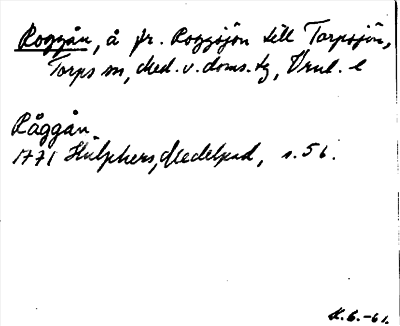 Roggån, å fr. Roggsjön till Torpsjön,
Torps sn, Med. v. doms. tg, Vrnl. l
Råggån
1771 Hülphers, Medelpad, s. 56.
M.6.-61.